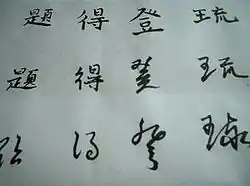 琉琉琉
登登登
得得得
題題題